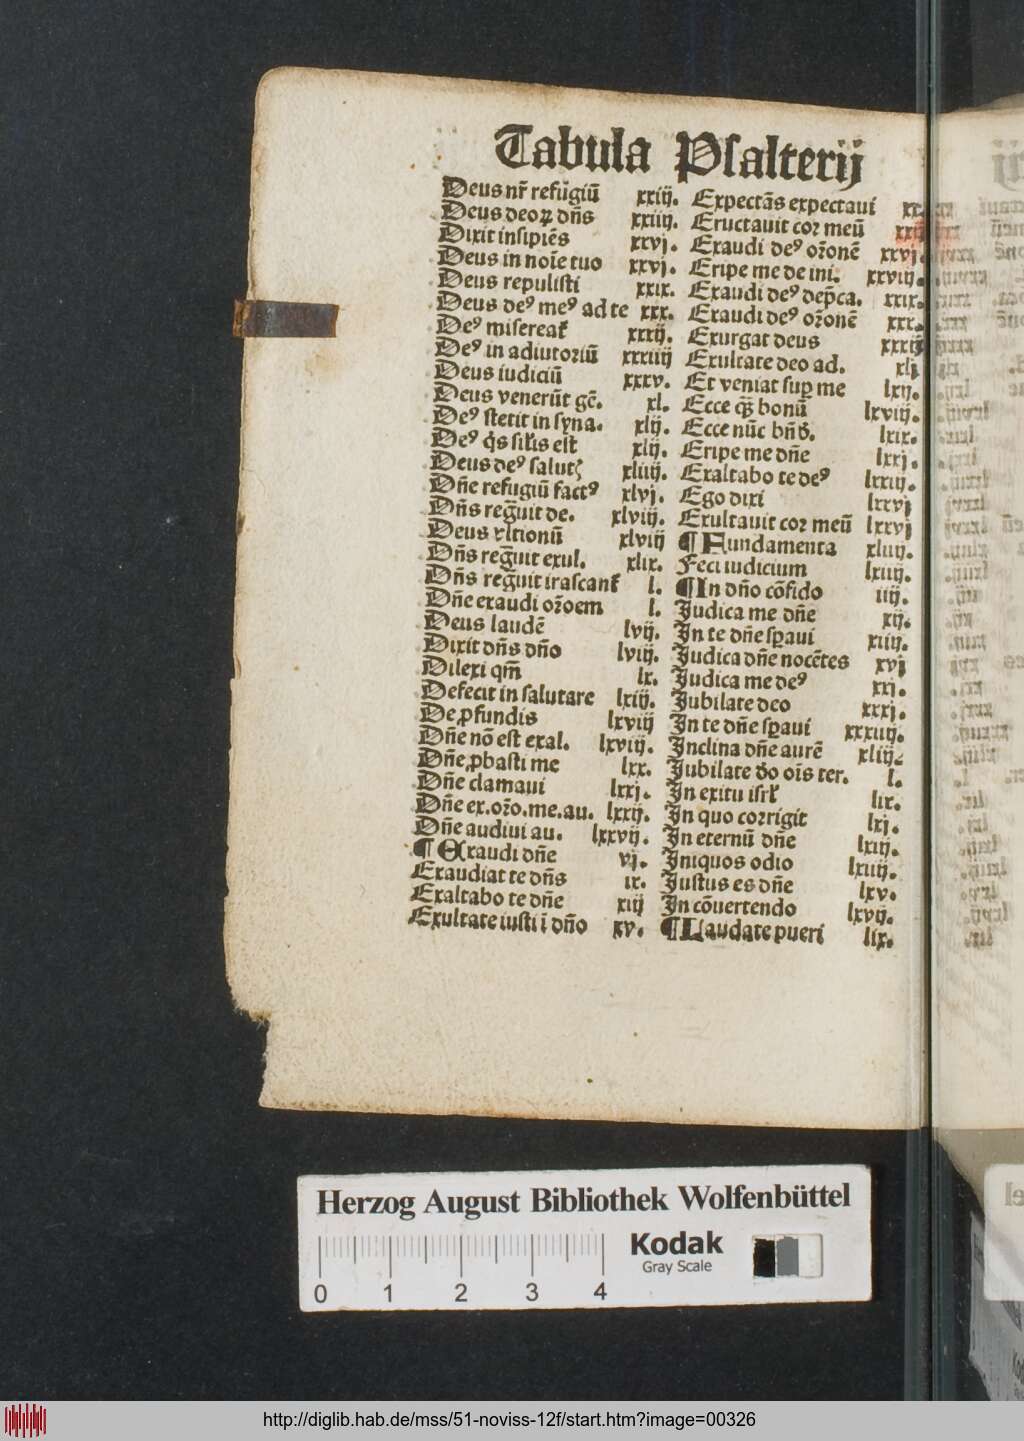 Tabula Psalterij
Deus nr̄ refugiū xxiij.
Deus deoꝝ dn̄s xxiiij.
Dixit insipiēs xxvj.
Deus in noīe tuo xxvj.
Deus repulisti xxix.
Deus deꝰ meꝰ ad te xxx.
Deꝰ misereat᷑ xxxij.
Deꝰ in adiutoriū xxxiiij
Deus iudiciū xxxv.
Deus venerūt gē. xl.
Deꝰ stetit in syna. xlij.
Deꝰ q̄s sil̄is est xlij.
Deus deꝰ salutꝭ xliiij.
Dn̄e refugiū factꝰ xlvj.
Dn̄s reḡuit de. xlviij.
Deus vltionū xlviij
Dn̄s reḡuit exul. xlix.
Dn̄s reḡuit irascant᷑ l.
Dn̄e exaudi or̄oem l.
Deus laudē lvij.
Dixit dn̄s dn̄o lviij.
Dilexi qm̄ lx.
Defecit in salutare lxiij.
De ꝓfundis lxviij
Dn̄e nō est exal. lxviij.
Dn̄e ꝓbasti me lxx.
Dn̄e clamaui lxxj.
Dn̄e ex.or̄o.me.au. lxxij.
Dn̄e audiui au. lxxvij.
¶ Exaudi dn̄e vj.
Exaudiat te dn̄s ix.
Exaltabo te dn̄e xiij
Exultate iusti ī dn̄o xv.
Expectās expectaui
Eructauit cor meū
Exaudi deꝰ or̄onē xxvj.
Eripe me de ini. xxviij.
Exaudi deꝰ dep̄ca. xxix.
Exaudi deꝰ or̄onē xxx.
Exurgat deus xxxij
Exultate deo ad. xlj
Et veniat suꝑ me lxij.
Ecce q̄ꝫ bonū lxviij.
Ecce nūc bn̄d. lxix.
Eripe me dn̄e lxxj.
Exaltabo te deꝰ lxxiij.
Ego dixi lxxvj
Exultauit cor meū lxxvj
¶ Fundamenta xliiij.
Feci iudicium lxiiij.
¶ In dn̄o cōfido iiij.
Judica me dn̄e xij.
In te dn̄e sꝑaui xiiij.
Judica dn̄e nocētes xvj
Judica me deꝰ xxj.
Jubilate deo xxxj.
In te dn̄e sꝑaui xxxiiij.
Inclina dn̄e aurē xliij.
Jubilate do oīs ter. l.
In exitu isrl̄ lix.
In quo corrigit lxj.
In eternū dn̄e lxiij.
Iniquos odio lxiiij.
Justus es dn̄e lxv.
In cōuertendo lxvij.
¶ Laudate pueri lix.
Herzog August Bibliothek Wolfenbüttel
Kodak
Gray Scale
0 1 2 3 4
http://diglib.hab.de/mss/51-noviss-12f/start.htm?image=00326